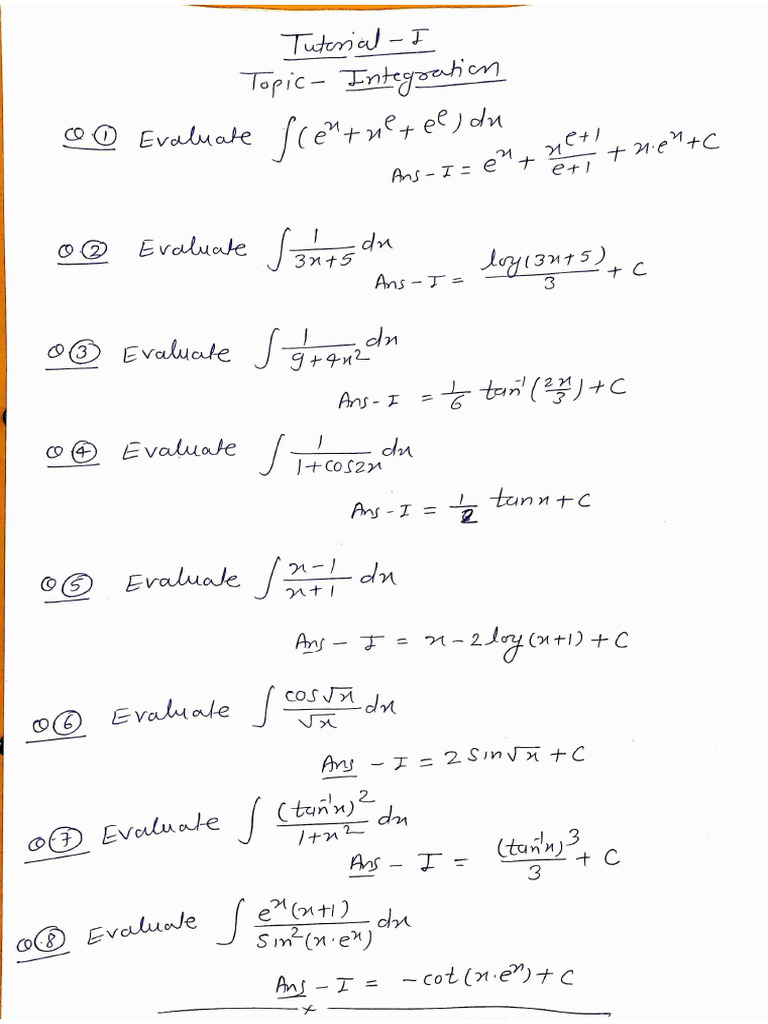 Tutorial - I
Topic - Integration
Q ① Evaluate ∫(eˣ + xᵉ + eᵉ) dx
Ans - I = eˣ + x^(e+1)/(e+1) + x·eˣ + C
Q ② Evaluate ∫ 1/(3x+5) dx
Ans - I = log(3x+5)/3 + C
Q ③ Evaluate ∫ 1/(9+4x²) dx
Ans - I = 1/6 tan⁻¹(2x/3) + C
Q ④ Evaluate ∫ 1/(1+cos2x) dx
Ans - I = 1/2 tanx + C
Q ⑤ Evaluate ∫ (x-1)/(x+1) dx
Ans - I = x - 2log(x+1) + C
Q ⑥ Evaluate ∫ cos√x/√x dx
Ans - I = 2 sin√x + C
Q ⑦ Evaluate ∫ (tan⁻¹x)²/(1+x²) dx
Ans - I = (tan⁻¹x)³/3 + C
Q ⑧ Evaluate ∫ eˣ(x+1)/sin²(x·eˣ) dx
Ans - I = -cot(x·eˣ) + C
x